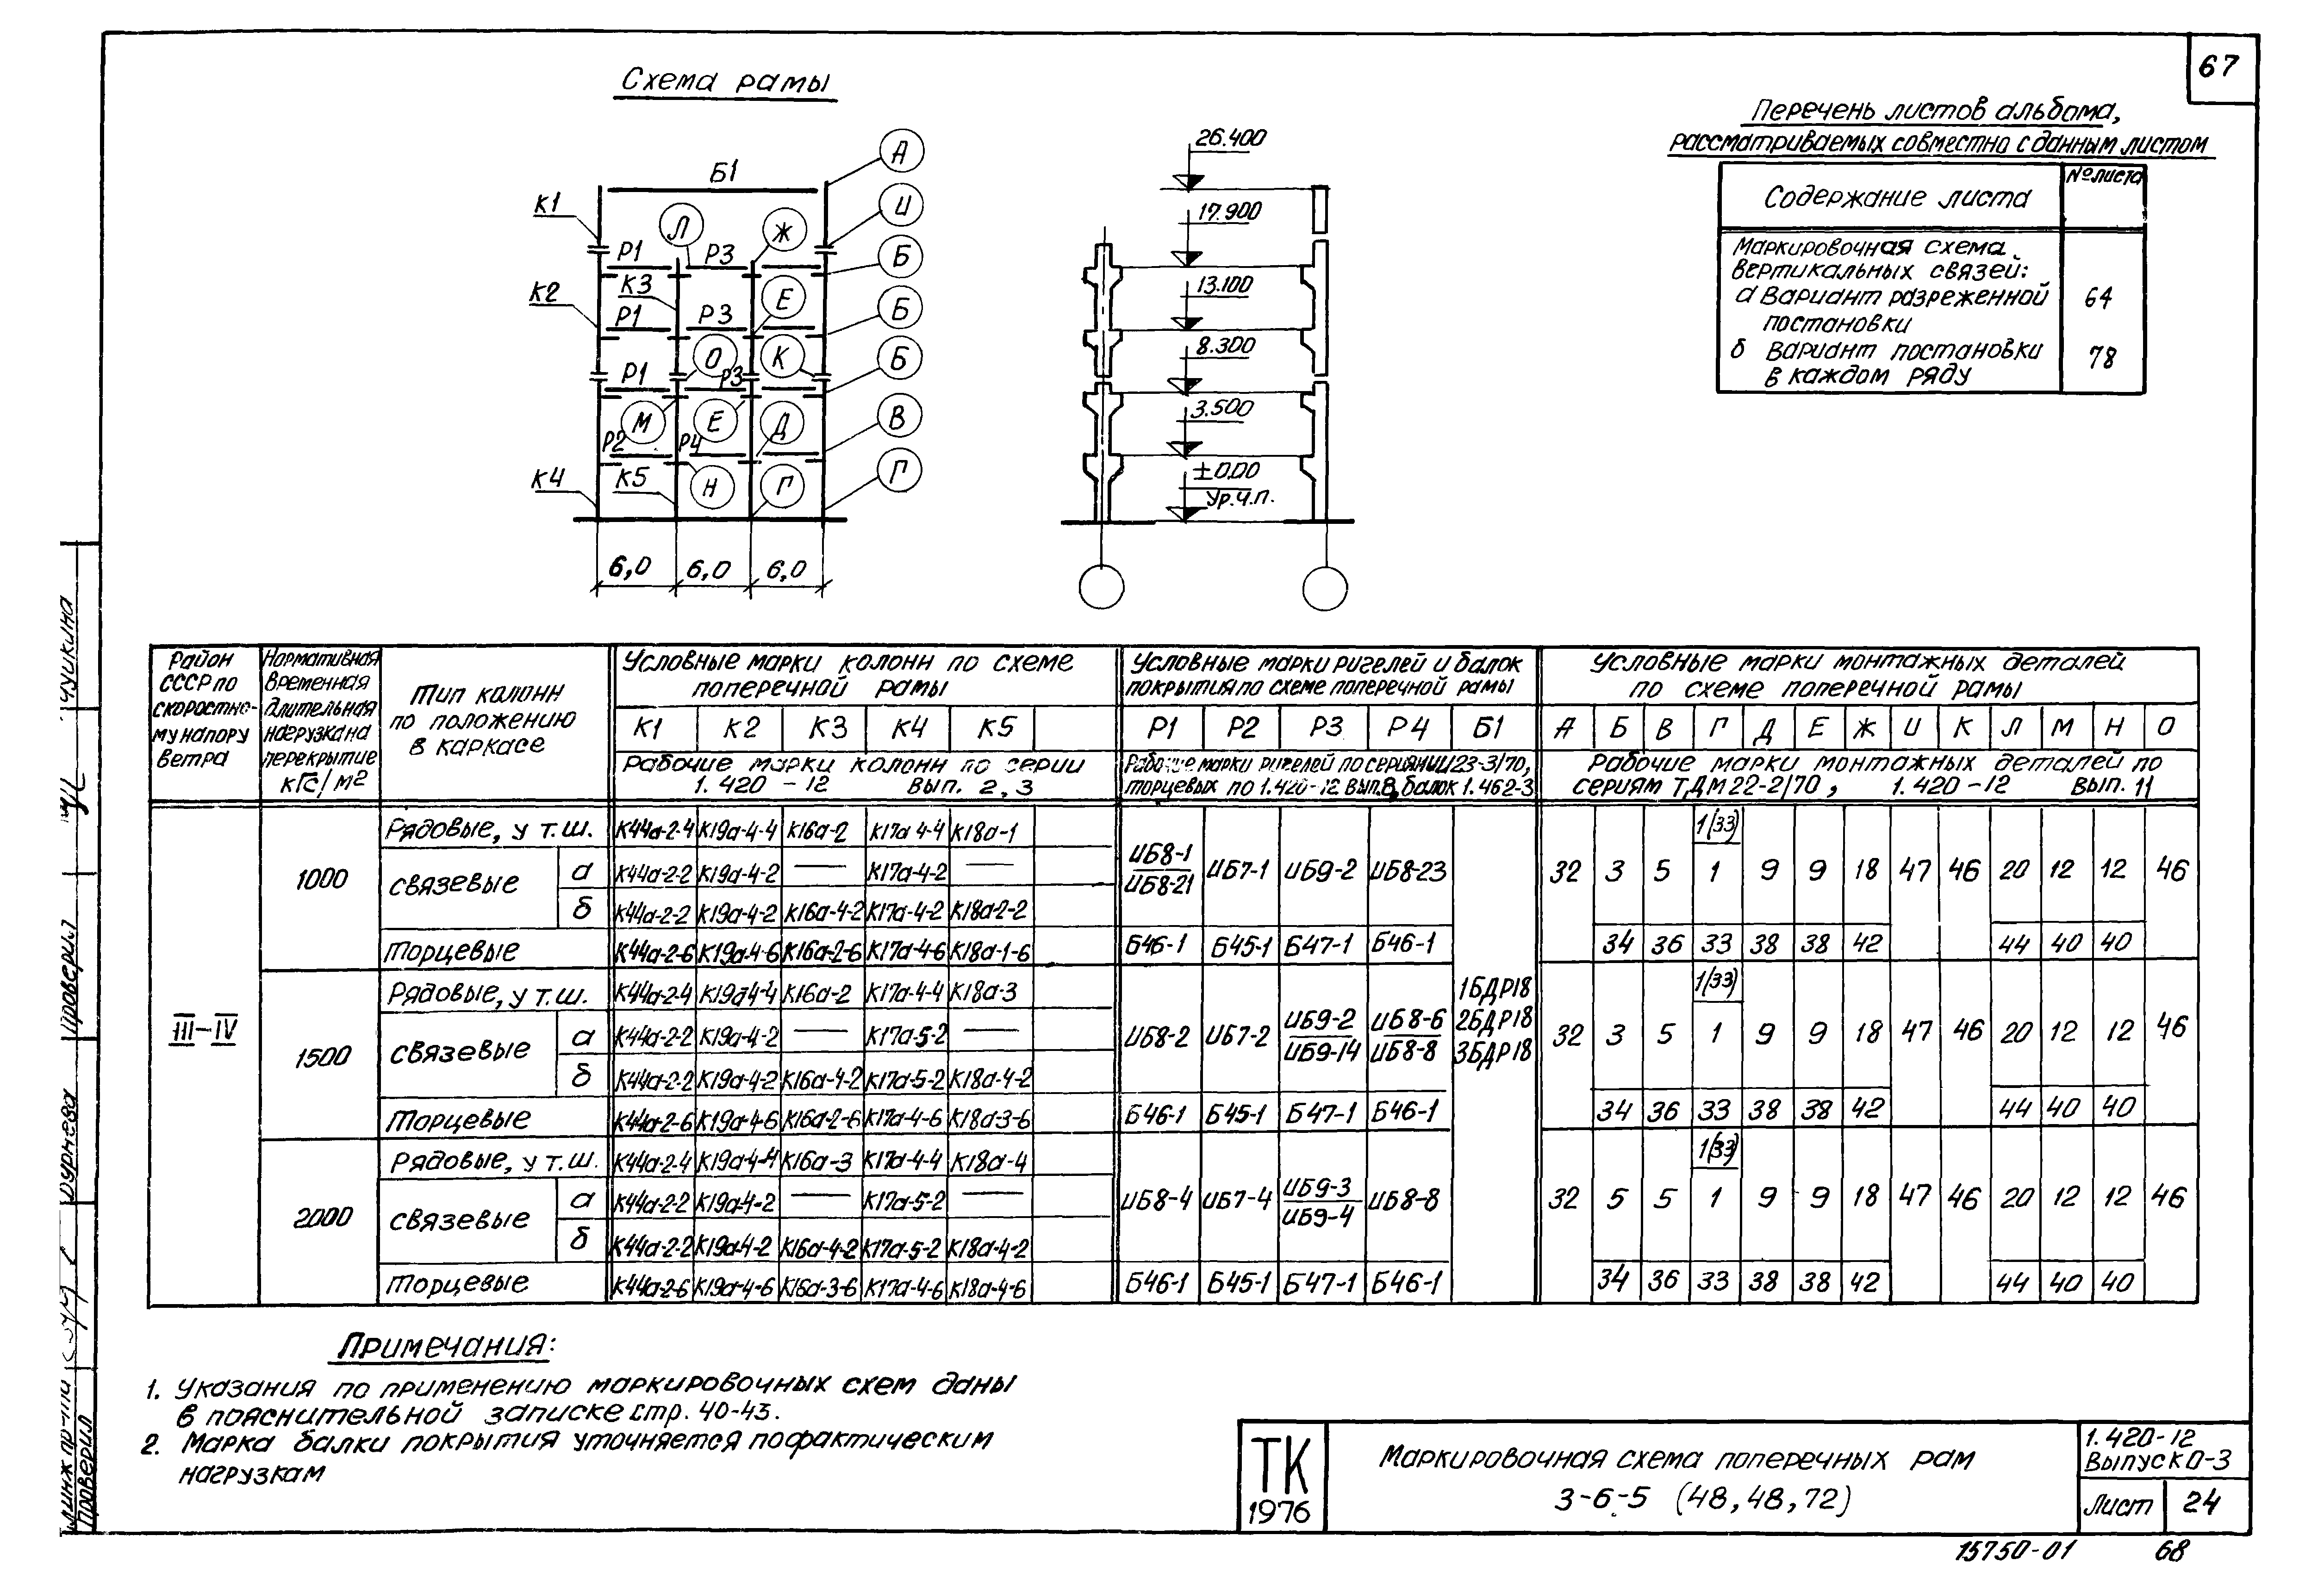 67
Схема рамы
Перечень листов альбома,
рассматриваемых совместно с данным листом
Содержание листа
№ листа
Маркировочная схема
вертикальных связей:
а Вариант разреженной
постановки
64
б Вариант постановки
в каждом ряду
78
Б1
А
К1
И
Л
Ж
Р1
Р3
Б
К3
К2
Е
Р1
Р3
Б
О
К
Р1
Р3
Б
М
Е
Д
В
Р2
Р4
К4
К5
Н
Г
Г
6,0
6,0
6,0
26.400
17.900
13.100
8.300
3.500
±0.00
Ур.ч.п.
Район
СССР по
скоростно-
му напору
ветра
Нормативная
временная
длительная
нагрузка на
перекрытие
кГс/м2
Тип колонн
по положению
в каркасе
Условные марки колонн по схеме
поперечной рамы
К1 К2 К3 К4 К5
Рабочие марки колонн по серии
1.420-12 вып. 2,3
Условные марки ригелей и балок
покрытия по схеме поперечной рамы
Р1 Р2 Р3 Р4 Б1
Рабочие марки ригелей по серии ИИ23-3/70,
торцевых по 1.420-12 вып.8, балок 1.462-3
Условные марки монтажных деталей
по схеме поперечной рамы
А Б В Г Д Е Ж И К Л М Н О
Рабочие марки монтажных деталей по
сериям ТДМ22-2/70, 1.420-12 вып. 11
III-IV
1000
Рядовые, у т.ш. К44а-2-4 К19а-4-4 К16а-2 К17а 4-4 К18а-1
связевые
а К44а-2-2 К19а-4-2 — К17а-4-2 —
б К44а-2-2 К19а-4-2 К16а-4-2 К17а-4-2 К18а-2-2
торцевые К44а-2-6 К19а-4-6 К16а-2-6 К17а-4-6 К18а-1-6
ИБ8-1
ИБ8-21
ИБ7-1 ИБ9-2 ИБ8-23
Б46-1 Б45-1 Б47-1 Б46-1
1(33)
32 3 5 1 9 9 18 47 46 20 12 12 46
34 36 33 38 38 42 44 40 40
1500
Рядовые, у т.ш. К44а-2-4 К19а4-4 К16а-2 К17а-4-4 К18а-3
связевые
а К44а-2-2 К19а-4-2 — К17а-5-2 —
б К44а-2-2 К19а-4-2 К16а-4-2 К17а-5-2 К18а-4-2
Торцевые К44а-2-6 К19а-4-6 К16а-2-6 К17а-4-6 К18а-3-6
ИБ8-2 ИБ7-2
ИБ9-2
ИБ9-14
ИБ8-6
ИБ8-8
Б46-1 Б45-1 Б47-1 Б46-1
1БДР18
2БДР18
3БДР18
1(33)
32 3 5 1 9 9 18 47 46 20 12 12 46
34 36 33 38 38 42 44 40 40
2000
Рядовые, у т.ш. К44а-2-4 К19а-4-4 К16а-3 К17а-4-4 К18а-4
связевые
а К44а-2-2 К19а-4-2 — К17а-5-2 —
б К44а-2-2 К19а-4-2 К16а-4-2 К17а-5-2 К18а-4-2
торцевые К44а-2-6 К19а-4-6 К16а-3-6 К17а-4-6 К18а-4-6
ИБ8-4 ИБ7-4
ИБ9-3
ИБ9-4
ИБ8-8
Б46-1 Б45-1 Б47-1 Б46-1
1(33)
32 5 5 1 9 9 18 47 46 20 12 12 46
34 36 33 38 38 42 44 40 40
Примечания:
1. Указания по применению маркировочных схем даны
в пояснительной записке стр. 40-43.
2. Марка балки покрытия уточняется по фактическим
нагрузкам
ТК
1976
Маркировочная схема поперечных рам
3-6-5 (48,48,72)
1.420-12
Выпуск 0-3
Лист 24
15750-01 68
Проверил
Проверил